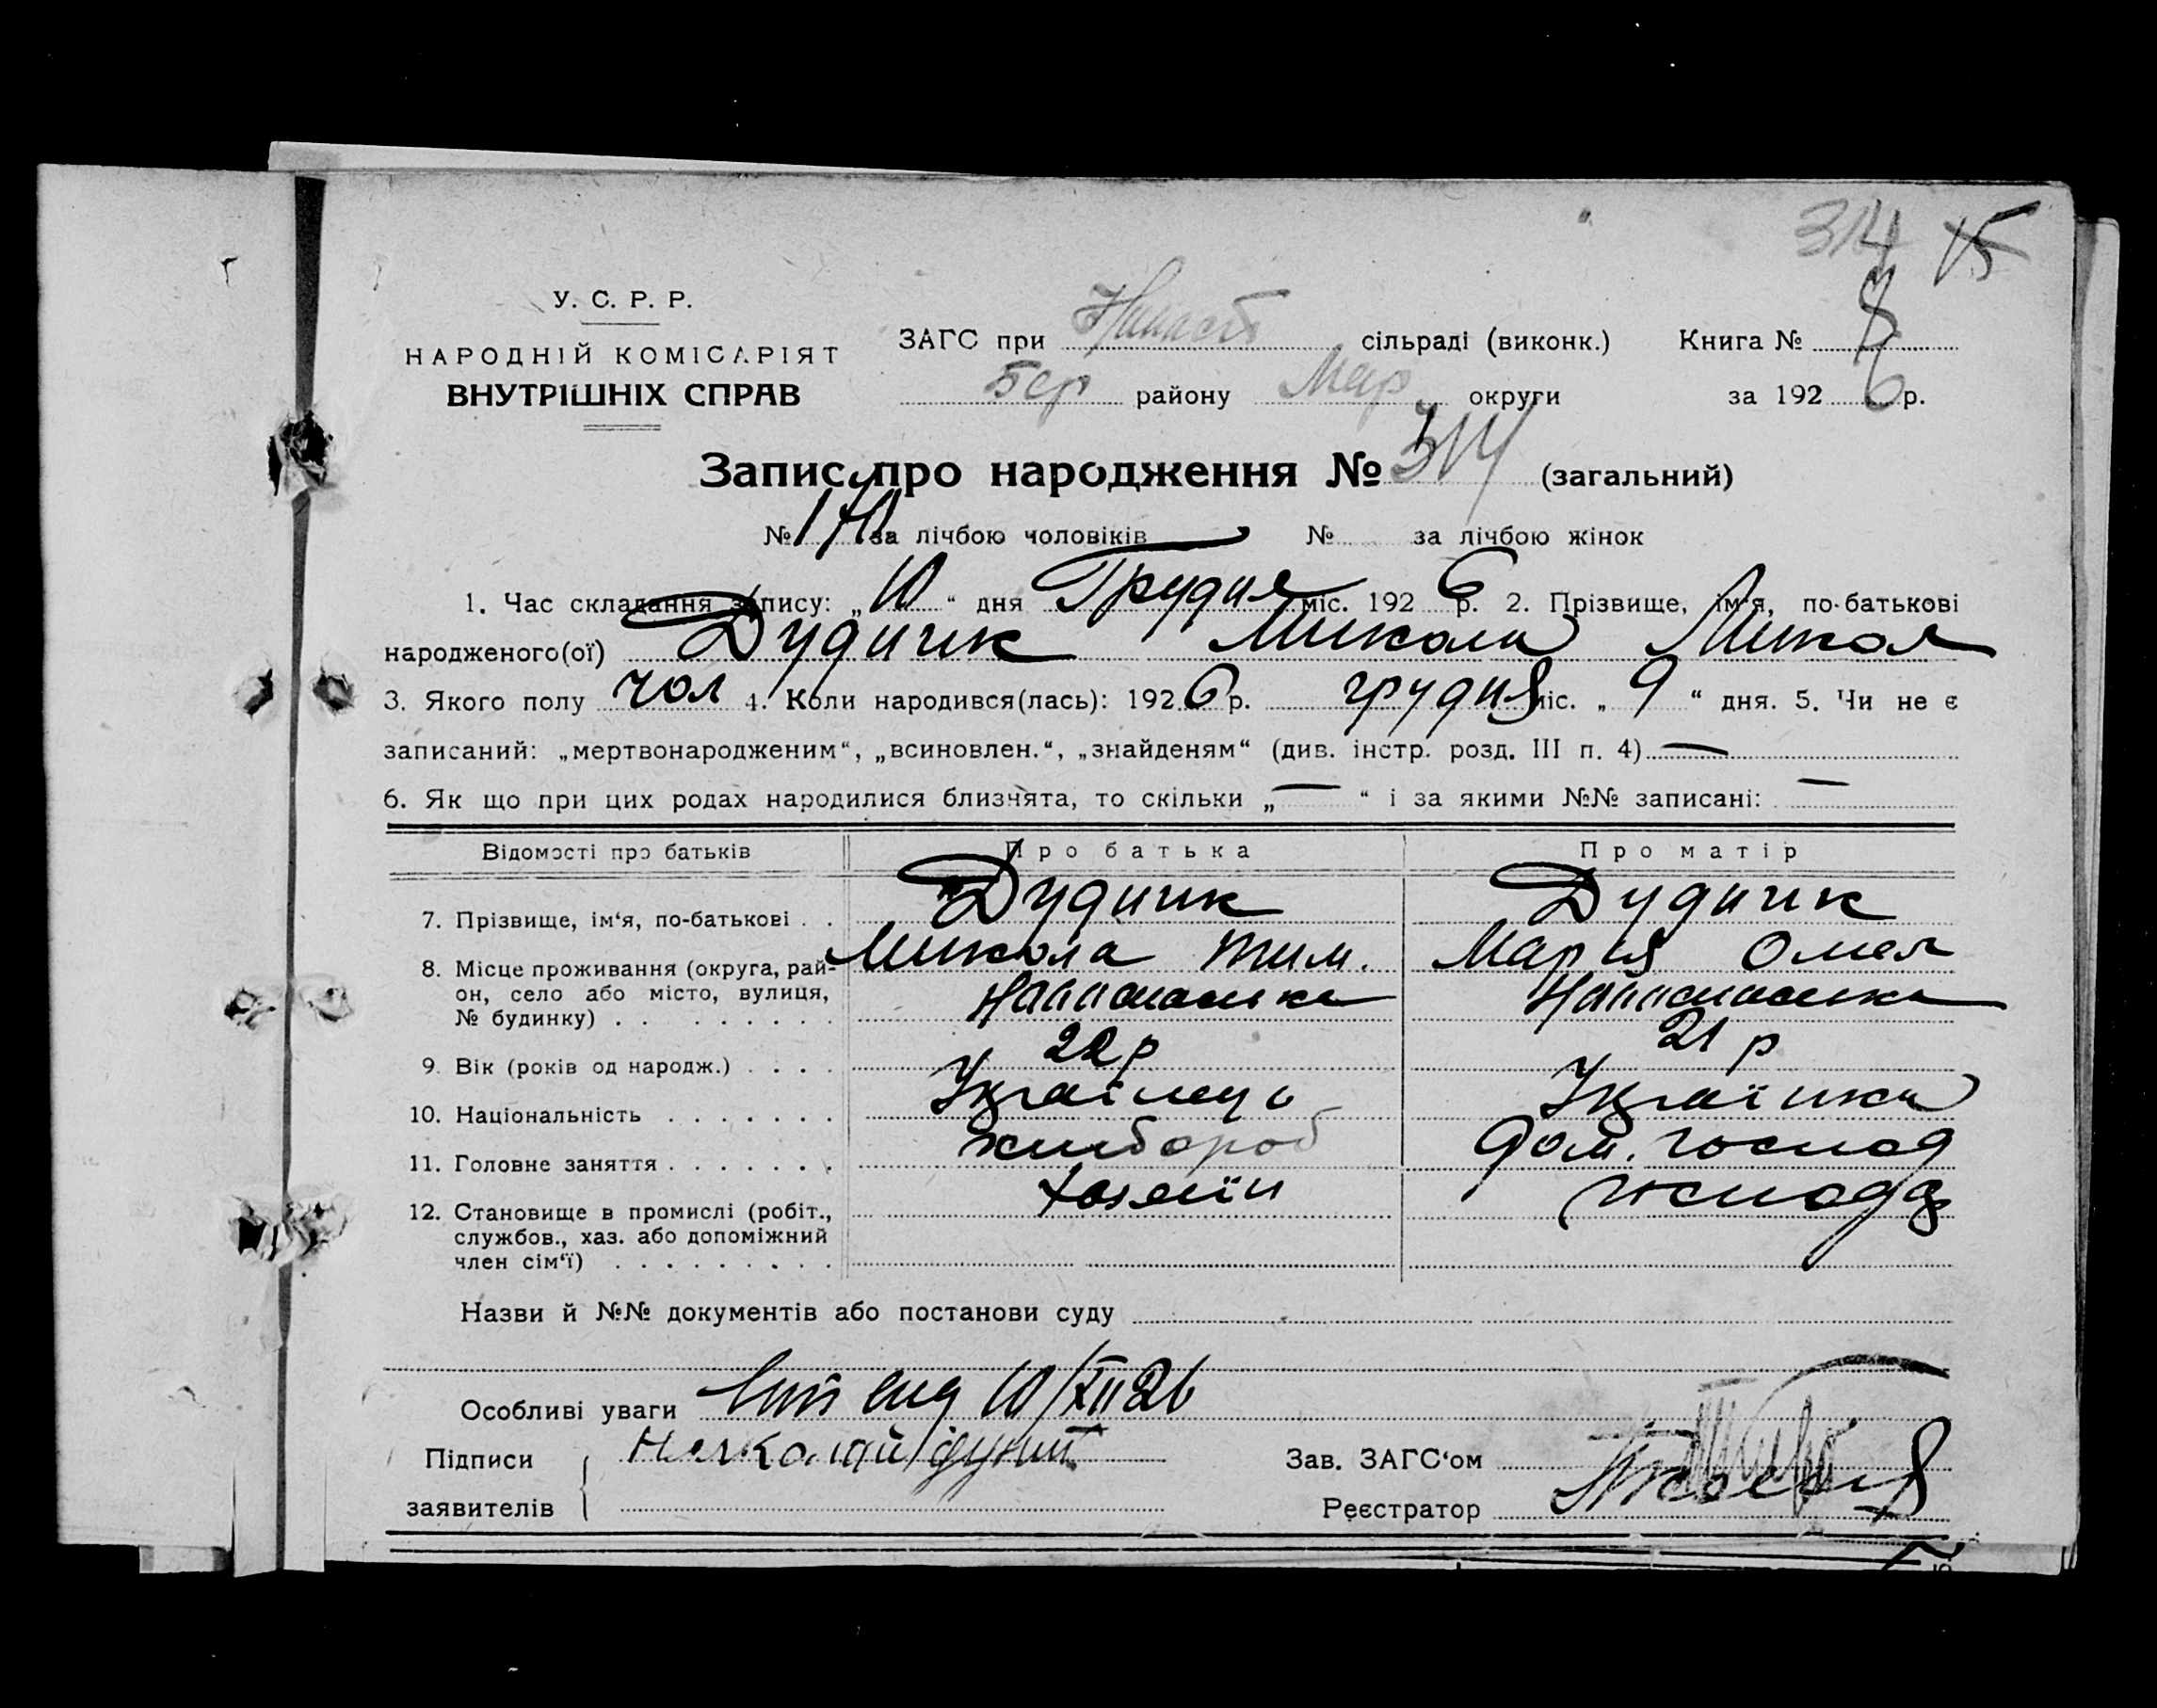 314 15
У. С. Р. Р.
НАРОДНІЙ КОМІСАРІЯТ
ВНУТРІШНІХ СПРАВ
ЗАГС при сільраді (виконк.) Книга №
Бер району Мар округи за 1926 р.
Запис про народження № 314 (загальний)
№ за лічбою чоловіків № за лічбою жінок
1. Час складання запису: „10“ дня Грудня міс. 1926 р. 2. Прізвище, ім‘я, по-батькові
народженого(ої) Дудчик Микола Микол
3. Якого полу чол 4. Коли народився(лась): 1926 р. грудня міс. „9“ дня. 5. Чи не є
записаний: „мертвонародженим“, „всиновлен.“, „знайденям“ (див. інстр. розд. III п. 4) —
6. Як що при цих родах народилися близнята, то скільки „—“ і за якими №№ записані: —
Відомості про батьків Про батька Про матір
7. Прізвище, ім‘я, по-батькові . . Дудчик Дудчик
Микола Тим. Мария Омел
8. Місце проживання (округа, район, село або місто, вулиця, № будинку) . .
9. Вік (років од народж.) . . . . 22 р 21 р
10. Національність . . . . . . . Українець Українка
11. Головне заняття . . . . . . . хлібороб Дом. господ
12. Становище в промислі (робіт., службов., хаз. або допоміжний член сім‘ї) . . . . . . . . . хазяїн господар
Назви й №№ документів або постанови суду
Особливі уваги 10/XII 26
Підписи
заявителів
Зав. ЗАГС‘ом
Реєстратор